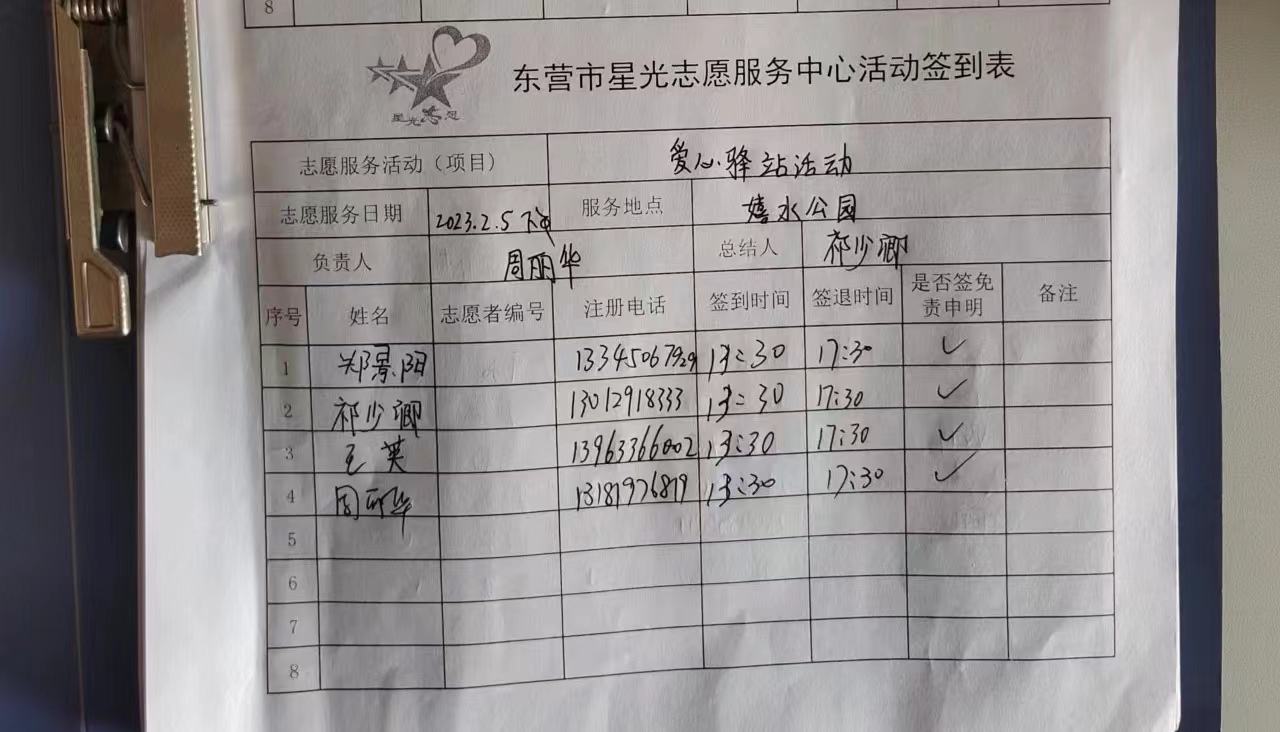 8
东营市星光志愿服务中心活动签到表
星光志愿
志愿服务活动（项目） 爱心驿站活动
志愿服务日期 2023.2.5 下午 服务地点 嬉水公园
负责人 周丽华 总结人 祁少卿
序号 姓名 志愿者编号 注册电话 签到时间 签退时间 是否签免责申明 备注
1 郑景阳 13345067929 13:30 17:30 ✓
2 祁少卿 13012918333 13:30 17:30 ✓
3 王英 13963366002 13:30 17:30 ✓
4 周丽华 13181976819 13:30 17:30 ✓
5
6
7
8